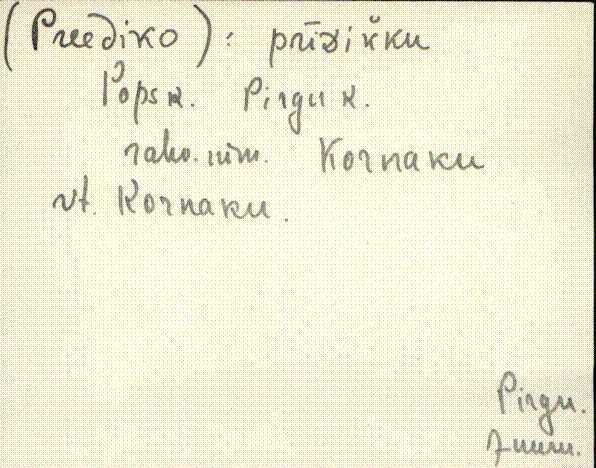 (Preediko): prīᴅiᴋ̆ku
Pops k. Pirgu k.
rahv. nim. Kornaku
vt. Kornaku.
Pirgu.